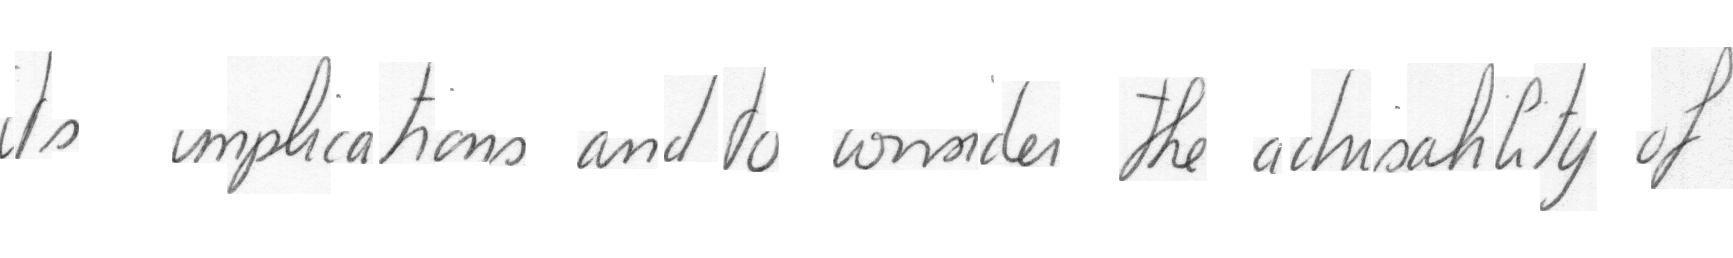 its implications and to consider the advisability of